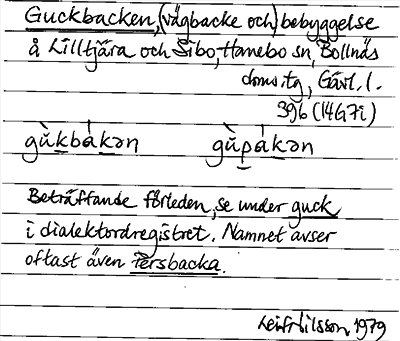 Guckbacken, (vägbacke och) bebyggelse
å Lilltjära och Sibo, Hanebo sn, Bollnäs
doms.tg, Gävl. l.
39b (14G7i)
gùkbákən gùpákən
Beträffande förleden, se under guck
i dialektordregistret. Namnet avser
oftast även Persbacka.
Leif Nilsson 1979